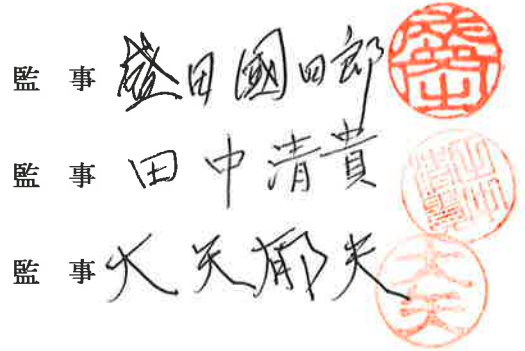 監 事 盛田國四郎
監 事 田中清貴
監 事 大矢郁夫
大矢